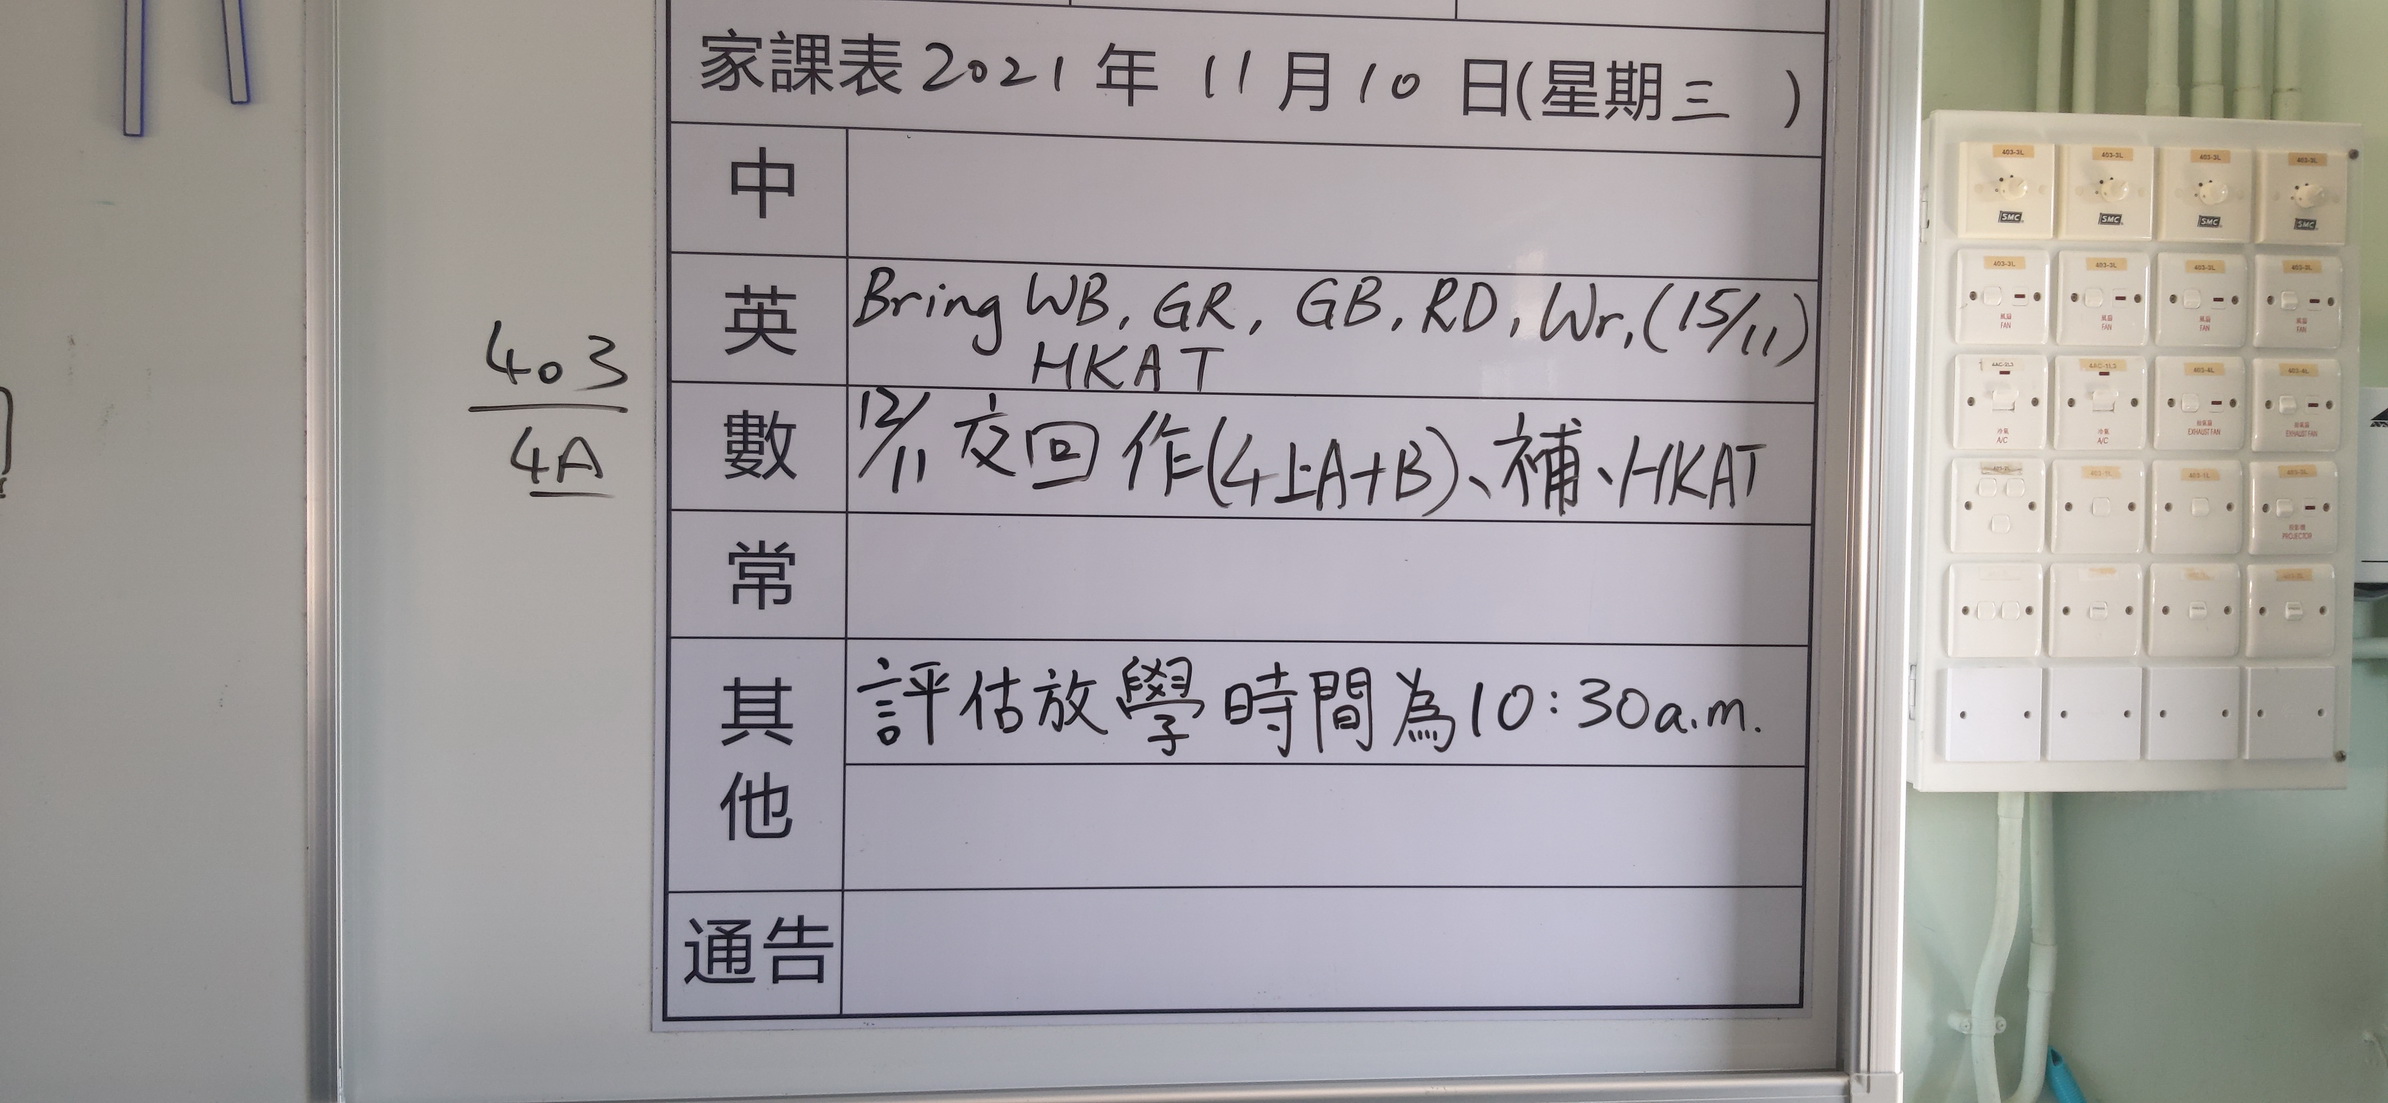 家課表 2021 年 11 月 10 日(星期三 )
中
英 Bring WB, GR, GB, RD, Wr, (15/11)
HKAT
數 12/11 交回 作(4上A+B)、補、HKAT
常
其他 評估放學時間為10:30a.m.
通告
403
4A
403-3L 403-3L 403-3L 403-3L
SMC SMC SMC SMC
403-3L 403-3L 403-3L 403-3L
風扇 風扇 風扇 風扇
FAN FAN FAN FAN
冷氣 冷氣 抽氣扇 抽氣扇
A/C A/C EXHAUST FAN EXHAUST FAN
投影機
PROJECTOR